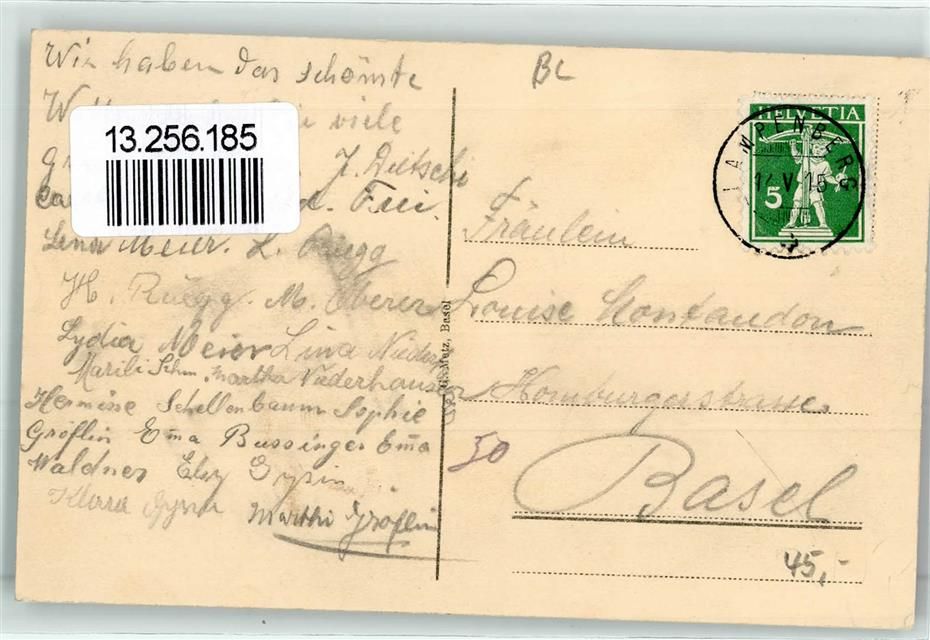 Wir haben das schönste
viele
J. Dietschi
Frei.
Lina Meier. L. Ruegg
H. Ruegg. M. Oberer
Lydia Meier Lina Niederh
Marili Schm. Martha Niederhauser
Hermine Schellenbaum Sophie
Gröflin Ema Bussinger Ema
Waldner Elsy Gysin
Klara Gysin Marthi Gröflin
13.256.185
G. Metz, Basel
BL
HELVETIA
5
LAMPENBERG
Fräulein
Louise Montandon
Homburgerstrasse
Basel
50
45,-